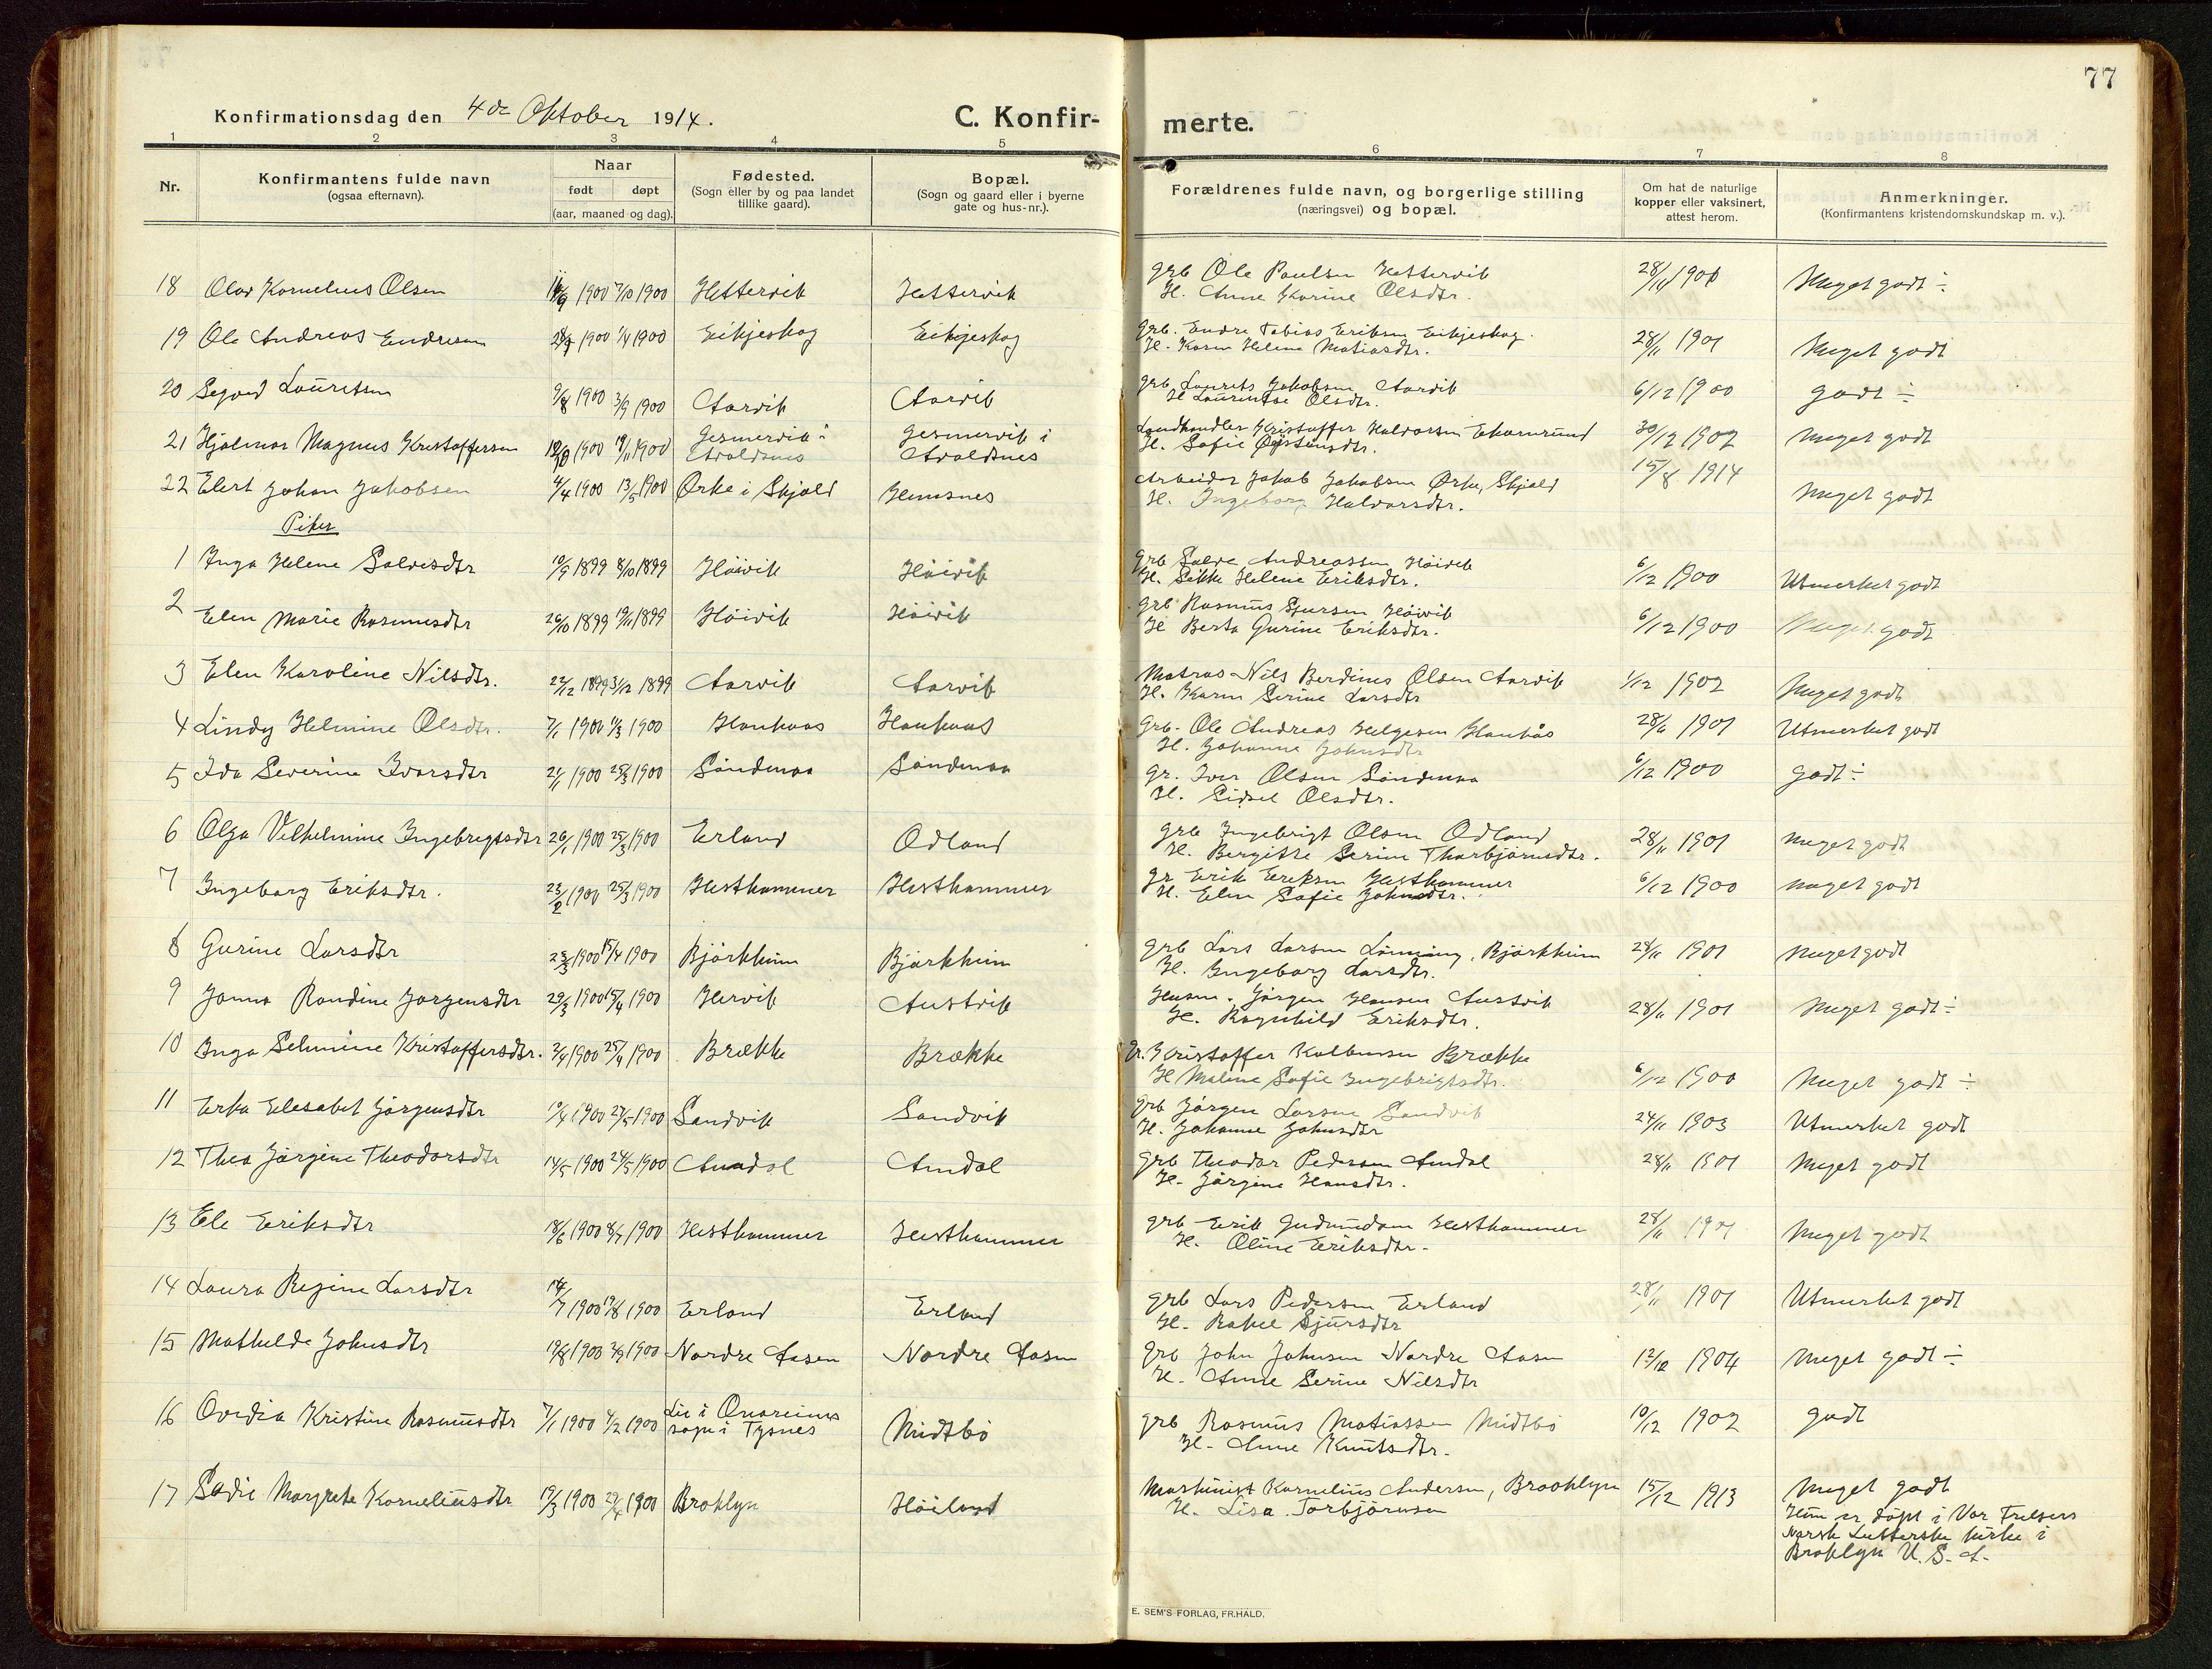 77
Konfirmationsdag den 4de Oktober 1914.
C. Konfir-
merte.
1 2 3 4 5 6 7 8
Nr.
Konfirmantens fulde navn
(ogsaa efternavn).
Naar
født døpt
(aar, maaned og dag).
Fødested.
(Sogn eller by og paa landet
tillike gaard).
Bopæl.
(Sogn og gaard eller i byerne
gate og hus-nr.).
Forældrenes fulde navn, og borgerlige stilling
(næringsvei) og bopæl.
Om hat de naturlige
kopper eller vaksinert,
attest herom.
Anmerkninger.
(Konfirmantens kristendomskundskap m. v.).
18 Olav Kornelius Olsen 1900 7/10 1900 Hettervik Hettervik grb Ole Paulsen Hettervik 28/11 1901 Meget godt ÷
H. Anne Karine Olsdtr.
19 Ole Andreas Endresen 1900 1/4 1900 Eikjeskog Eikjeskog grb. Endre Tobias Eriksen Eikjeskog. 28/11 1901 Meget godt
H. Karen Helene Matiasdtr.
20 Sigvard Lauritsen 9/8 1900 3/9 1900 Aarvik Aarvik grb Laurits Jakobsen Aarvik 6/12 1900 godt ÷
H Laurentse Olsdtr.
21 Hjalmar Magnus Kristoffersen 1900 19/11 1900 Gesmervik i Gesmervik i Landhandler Kristoffer Halvorsen Ekornsund 30/12 1902 Meget godt
Avaldsnes Avaldsnes H. Sofie Østensdtr.
22 Elert Johan Jakobsen 4/4 1900 13/5 1900 Ørke i Skjold Hemsnes Arbeider Jakob Jakobsen Ørke, Skjold 15/8 1914 Meget godt
H. Ingeborg Halvorsdtr.
Piker
1 Inga Helene Salvesdtr 10/9 1899 8/10 1899 Høivik Høivik grb Salve Andreassen Høivik 6/12 1900 Utmerket godt
H. Sikke Helene Eriksdtr.
2 Elen Marie Rasmusdtr 26/10 1899 19/11 1899 Høivik Høivik grb Rasmus Sjursen Høivik 6/12 1900 Meget godt
H Berta Gurine Eriksdtr.
3 Elen Karoline Nilsdtr. 22/12 1899 31/12 1899 Aarvik Aarvik Matros Nils Berdines Olsen Aarvik 1/12 1902 Meget godt
H. Karen Serine Larsdtr
4 Lindy Helmine Olsdtr. 7/1 1900 1/3 1900 Haukaas Haukaas grb. Ole Andreas Helgesen Haukås 28/11 1901 Utmerket godt
H. Johanne Johnsdtr
5 Ida Severine Ivarsdtr 21/1 1900 25/3 1900 Søndenaa Søndenaa gr. Iver Olsen Søndenaa 6/12 1900 godt ÷
H. Sidsel Olsdtr.
6 Olga Vilhelmine Ingebregtsdtr 26/1 1900 25/3 1900 Erland Odland grb Ingebrigt Olsen Odland 28/11 1901 meget godt
H. Bergitte Serine Thorbjørnsdtr.
7 Ingeborg Eriksdtr. 23/2 1900 25/3 1900 Hesthammer Hesthammer gr Erik Eriksen Hesthammer 6/12 1900 meget godt
H. Elen Sofie Johnsdtr.
8 Gurine Larsdtr 23/3 1900 15/4 1900 Bjørkheim Bjørkheim grb Lars Larsen Lønning, Bjørkheim 28/11 1901 meget godt
H. Ingeborg Larsdtr.
9 Janna Randine Jørgensdtr 29/3 1900 15/4 1900 Hervik Austvik Husm. Jørgen Hansen Austvik 28/11 1901 Meget godt ÷
H. Ragnhild Eriksdtr.
10 Inga Selmine Kristoffersdtr. 2/4 1900 25/4 1900 Brække Brække Gr. Kristoffer Kolbensen Brække 6/12 1900 Meget godt ÷
H Malene Sofie Ingebrigtsdtr.
11 Erka Elesabet Jørgensdtr 10/4 1900 27/5 1900 Sandvik Sandvik grb Jørgen Larsen Sandvik 24/11 1903 Utmerket godt
H. Johanne Johnsdtr
12 Thea Jørgine Theodorsdtr 14/5 1900 24/5 1900 Amdal Amdal grb Theodor Pedersen Amdal 28/11 1901 Meget godt
H. Jørgine Hansdtr.
13 Ele Eriksdtr 18/6 1900 8/7 1900 Hesthammer Hesthammer grb Erik Gudmundsen Hesthammer 28/11 1901 Meget godt
H. Oline Eriksdtr.
14 Laura Regine Larsdtr 14/7 1900 19/8 1900 Erland Erland grb Lars Pedersen Erland 28/11 1901 Utmerket godt
H. Rakel Sjursdtr
15 Mathilde Johnsdtr 19/8 1900 2/9 1900 Nordre Aasen Nordre Aasen grb John Johnsen Nordre Aasen 12/12 1904 Meget godt ÷
H. Anne Serine Nilsdtr
16 Ovedia Kristine Rasmusdtr 7/1 1900 4/2 1900 Lie i Onareimes Midtbø grb Rasmus Matiassen Midtbø 10/12 1902 godt
sogn i Tysnes H. Anne Knutsdtr.
17 Sadie Margrete Korneliusdtr 19/3 1900 29/4 1900 Broklyn Høiland Maskinist Kornelius Andersen, Brooklyn 15/12 1913 Meget godt
H. Lisa Torbjørnsen Hun er døpt i Vor Frelsers
Norsk Lutterske kirke i
Broklyn U. S. A.
E. SEM'S FORLAG, FR.HALD.